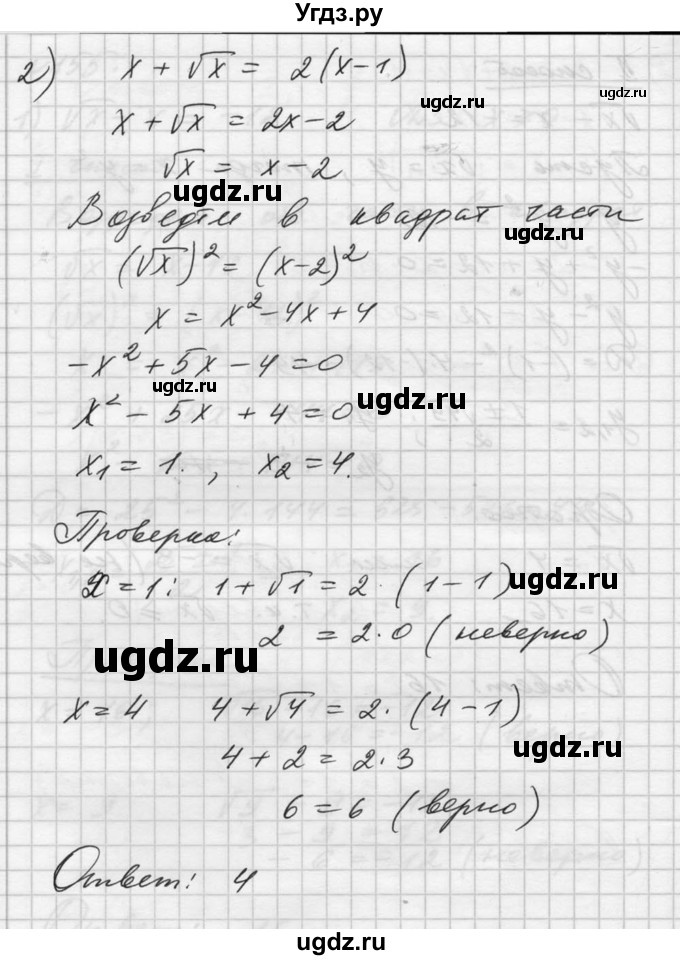 Угдз.ру
2) x + √x = 2(x-1)
ugdz.ru
ugdz.ru
x + √x = 2x-2
√x = x-2
ugdz.ru
Возведём в квадрат части
ugdz.ru
(√x)² = (x-2)²
x = x²-4x+4
-x²+5x-4=0
ugdz.ru
ugdz.ru
x²-5x+4=0
x₁=1. , x₂=4.
Проверка:
x=1: 1+√1=2·(1-1)
ugdz.ru
2 = 2·0 (неверно)
ugdz.ru
x=4 4+√4=2·(4-1)
ugdz.ru
4+2=2·3
6=6 (верно)
Ответ: 4
ugdz.ru